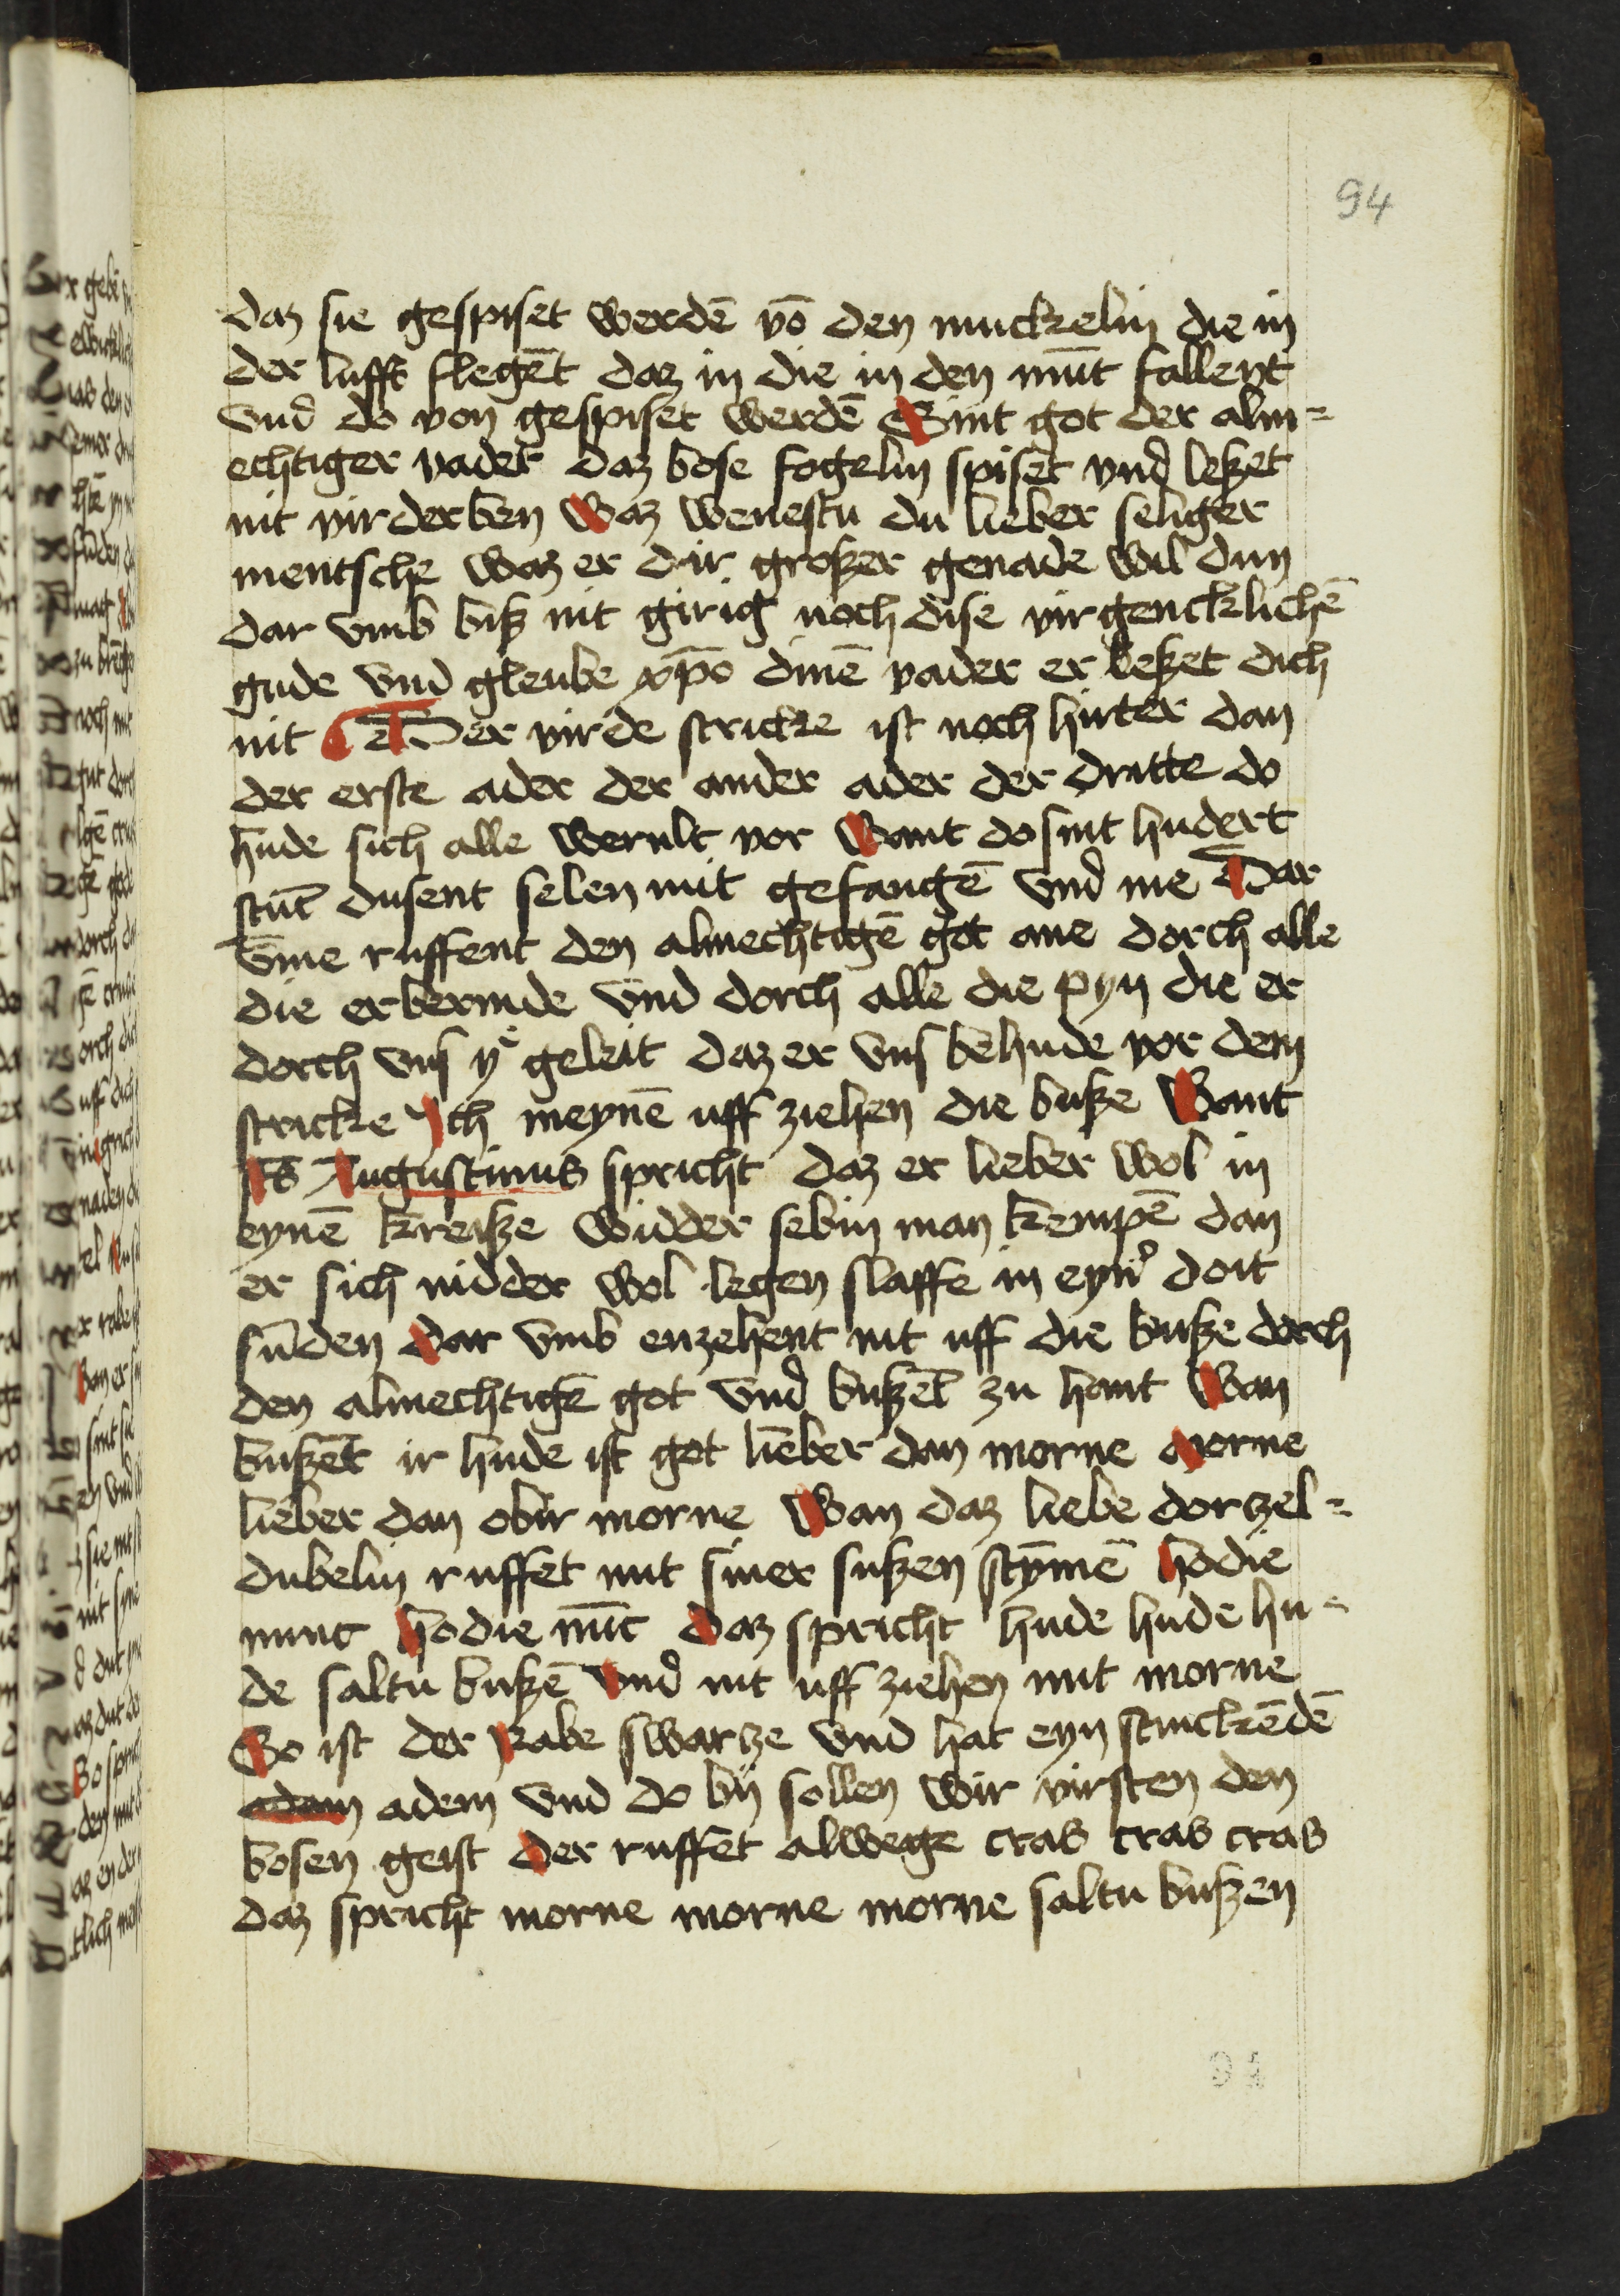 94
daz sie gespiset werdē vō den muckelin die in
der lufft flegēt daz in die in den mūt fallent
vnd do von gespiset werdē Sint got der alm=
echtiger vader daz bose fogelin spiset vnd leßet
nit virderben Waz wenestu du lieber seliger
mentsche waz er dir großer genade wil dun
dar vmb biß nit girig noch dise virgencklichē
gude vnd gleube xp̄o dinē vader er leßet dich
nit Der virde stricke ist noch hirter dan
der erste ader der ander ader der dritte do
hude sich alle wernlt vor Want do sint hudert
stūt dusent selen mit gefangē vnd me Dar
v̄me ruffent den almechtigē got ane dorch alle
die erbermde vnd dorch alle die pyn die er
dorch vns y geleit daz er vns behude vor dem
stricke Ich meynē uff ziehen die buße Want
Ss Augustinus spricht daz er lieber wol in
eynē kreiße widder sebin man kempē dan
er sich nidder wol legen slaffe in eyn̄ doit
sūden dar vmb enzehent nit uff die buße dorch
den almechtigē got vnd bußēt zu hant Wan
bußēt ir hude ist got lieber dan morne Morne
lieber dan obir morne Wan daz liebe dorzel=
dubelin ruffet mit siner sußen stȳmē hodie
nunc hodie nūc daz spricht hude hude hu-
de saltu bußē vnd nit uff ziehen mit morne
So ist der Rabe swarze vnd hat eyn stinckēdē
adam adem vnd do by sollen wir virsten den
bosen geist der ruffet alwege cras cras cras
daz spricht morne morne morne saltu bußen